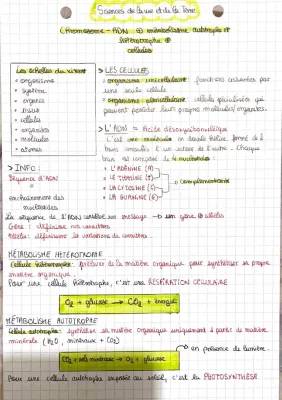 Sciences de la vie et de la Terre
Chromosome - ADN ⊕ métabolisme autotrophe et
hétérotrophe ⊕
cellules
Les échelles du vivant
• organisme
• système
• organes
• tissus
• cellule
• organites
• molécules
• atomes
> LES CELLULES
organisme unicellulaire : fonctions assurées par
une seule cellule
organisme pluricellulaire : cellules spécialisées qui
peuvent posséder leurs propres molécules/organites.
> L'ADN = Acide désoxyribonucléique
C'est une molécule en double hélice, formé de 2
brins enroulés l'un autour de l'autre. Chaque
brin est composé de 4 nucléotides :
• L'ADÉNINE (A)
• LE THYMINE (T)
• LA CYTOSINE (C)
• LA GUANINE (G)
complémentaires
> INFO :
Séquence d'ADN
=
enchaînement des
nucléotides
La séquence de l'ADN constitue un message → un gène ⊕ allèles
Gène : détermine un caractère
Allèle : détermine la variations du caractère.
MÉTABOLISME HÉTÉROTROPHE
Cellule hétérotrophe : prélever de la matière organique pour synthétiser sa propre
matière organique.
Pour une cellule hétérotrophe, c'est une RESPIRATION CELLULAIRE
O₂ + glucose → CO₂ + énergie
MÉTABOLISME AUTOTROPHE
Cellule autotrophe : synthétise sa matière organique uniquement à partir de matière
minérale (H₂O, minéraux + CO₂)
CO₂ + sels minéraux → O₂ + glucose
en présence de lumière.
Pour une cellule autotrophe exposée au soleil, c'est la PHOTOSYNTHÈSE